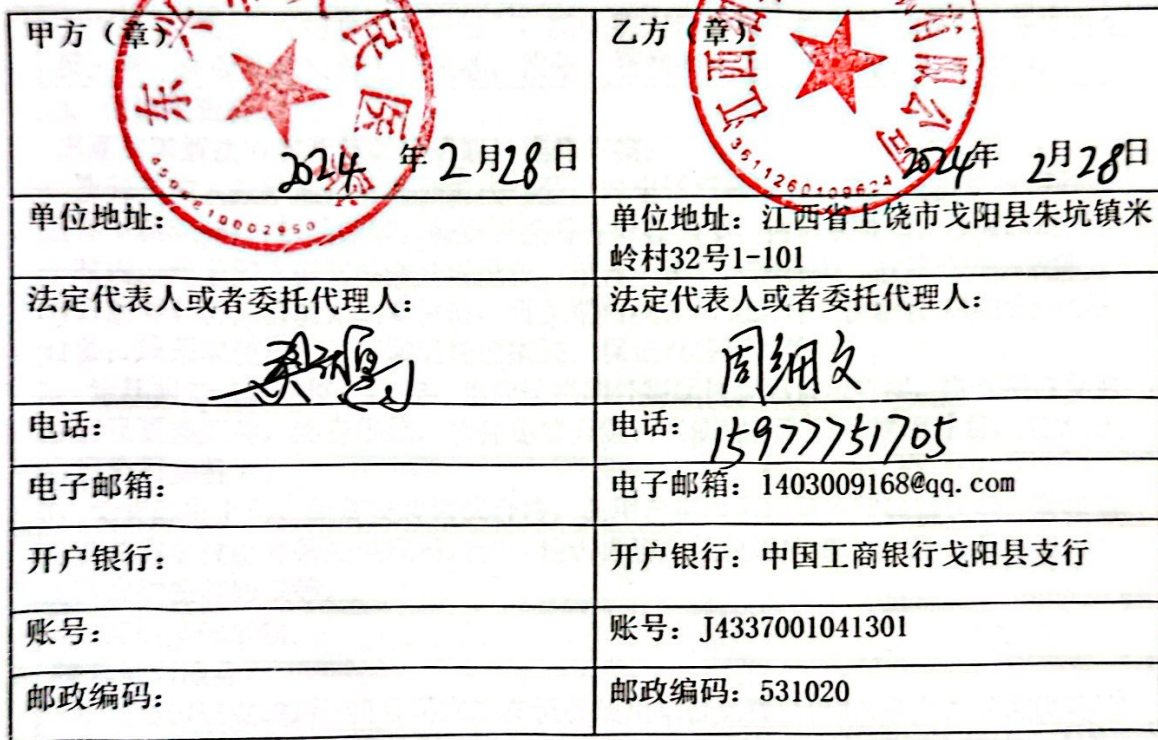 甲方（章）
乙方（章）
东兴 人民医
江西 有限公司
2024 年 2月28日
2024年 2月28日
3611260109624
单位地址：
单位地址：江西省上饶市弋阳县朱坑镇米
岭村32号1-101
法定代表人或者委托代理人：
法定代表人或者委托代理人：
周细文
电话：
电话：15977751705
电子邮箱：
电子邮箱：1403009168@qq.com
开户银行：
开户银行：中国工商银行弋阳县支行
账号：
账号：J4337001041301
邮政编码：
邮政编码：531020